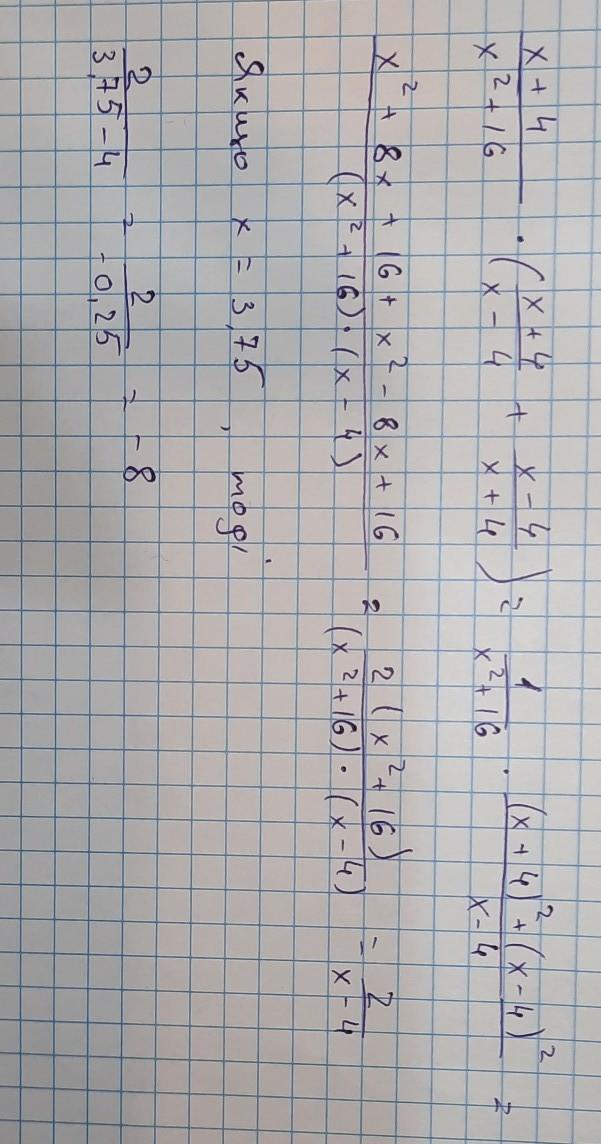 (x+4)/(x²+16) · ((x+4)/(x-4) + (x-4)/(x+4)) = 1/(x²+16) · ((x+4)²+(x-4)²)/(x-4) =
(x²+8x+16+x²-8x+16)/((x²+16)·(x-4)) = 2(x²+16)/((x²+16)·(x-4)) = 2/(x-4)
Якщо x = 3,75, тоді
2/(3,75-4) = 2/(-0,25) = -8